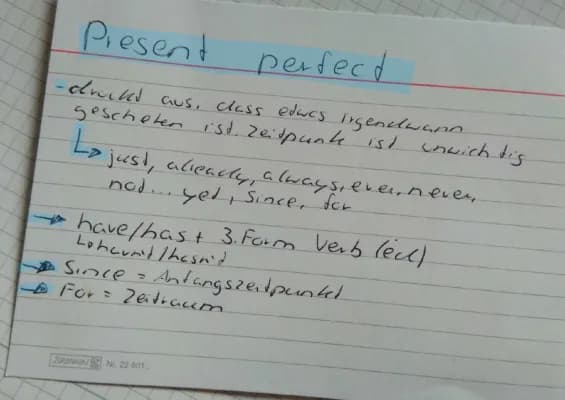 Present perfect
- drückt aus, dass etwas irgendwann
geschehen ist. Zeitpunkt ist unwichtig
↳ just, already, always, ever, never,
not... yet, since, for
→ have/has + 3. Form Verb (ed)
↳ haven't/hasn't
→ Since = Anfangszeitpunkt
→ For = Zeitraum
Nr. 22 601